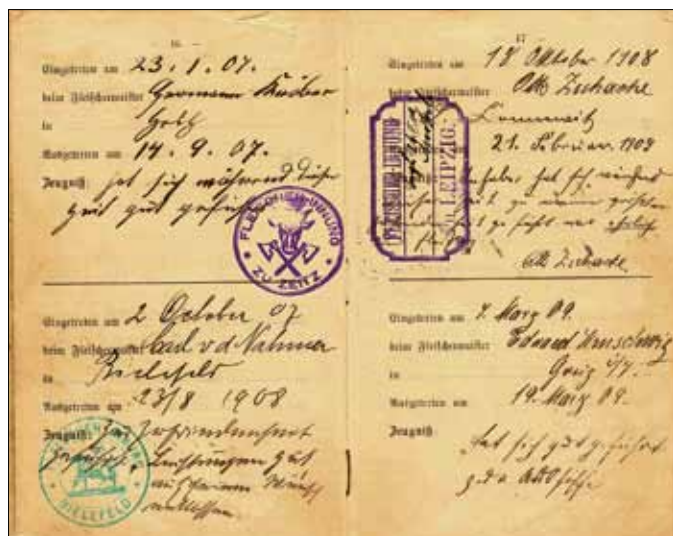 16 —
Eingetreten am 23. 1. 07.
beim Fleischermeister Hermann
in
Ausgetreten am 14. 9. 07.
Zeugniß: hat sich während dieser
Zeit gut geführt
FLEISCHER-INNUNG
ZU ZEITZ
Eingetreten am 2 October 07
beim Fleischermeister Carl v d Nahmer
in Bielefeld
Ausgetreten am 23/8 1908
Zeugniß: Zur Zufriedenheit
geführt. Leistungen gut
auf seinen Wunsch
entlassen.
BIELEFELD
17
Eingetreten am 18 Oktober 1908
beim Fleischermeister Otto Zschache
FLEISCHER-INNUNG
ZU LEIPZIG.
21. Februar. 1909
Inhaber hat sich während
Zeit zu meiner
geführt war ehrlich
Otto Zschache
Eingetreten am 7. März 09.
beim Fleischermeister Eduard
in Greiz
Ausgetreten am 19. März 09.
Zeugniß:
hat sich gut geführt